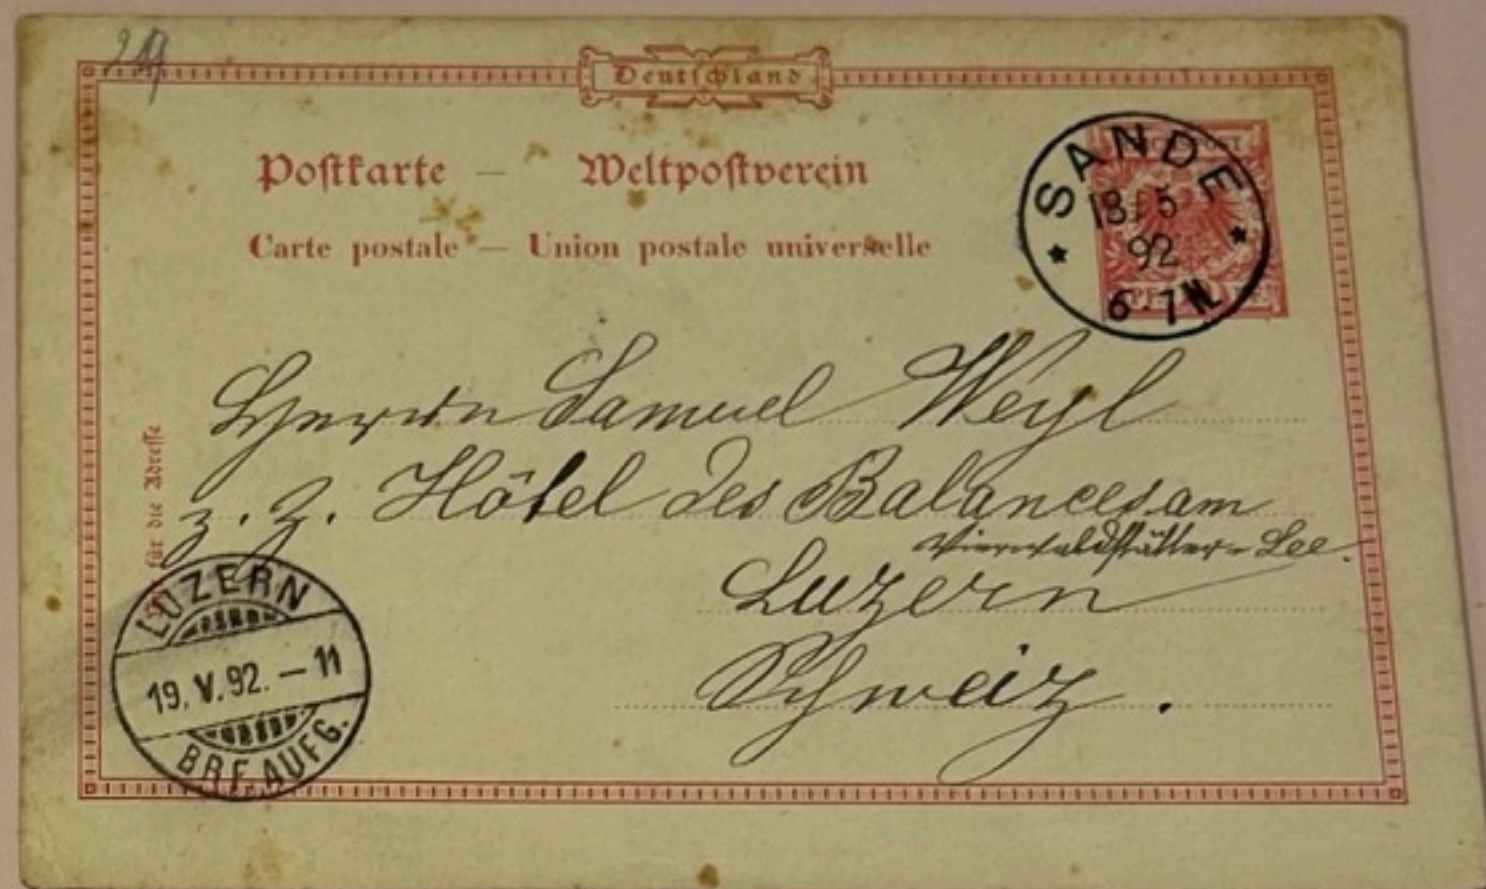 Deutschland
Postkarte — Weltpostverein
Carte postale — Union postale universelle
SANDE
18/5
92
6-7N
Herrn Samuel Weyl
z. Z. Hôtel des Balances am
Vierwaldstätter-See.
Luzern
Schweiz.
für die Adresse
LUZERN
19.V.92.–11
BRF.AUFG.